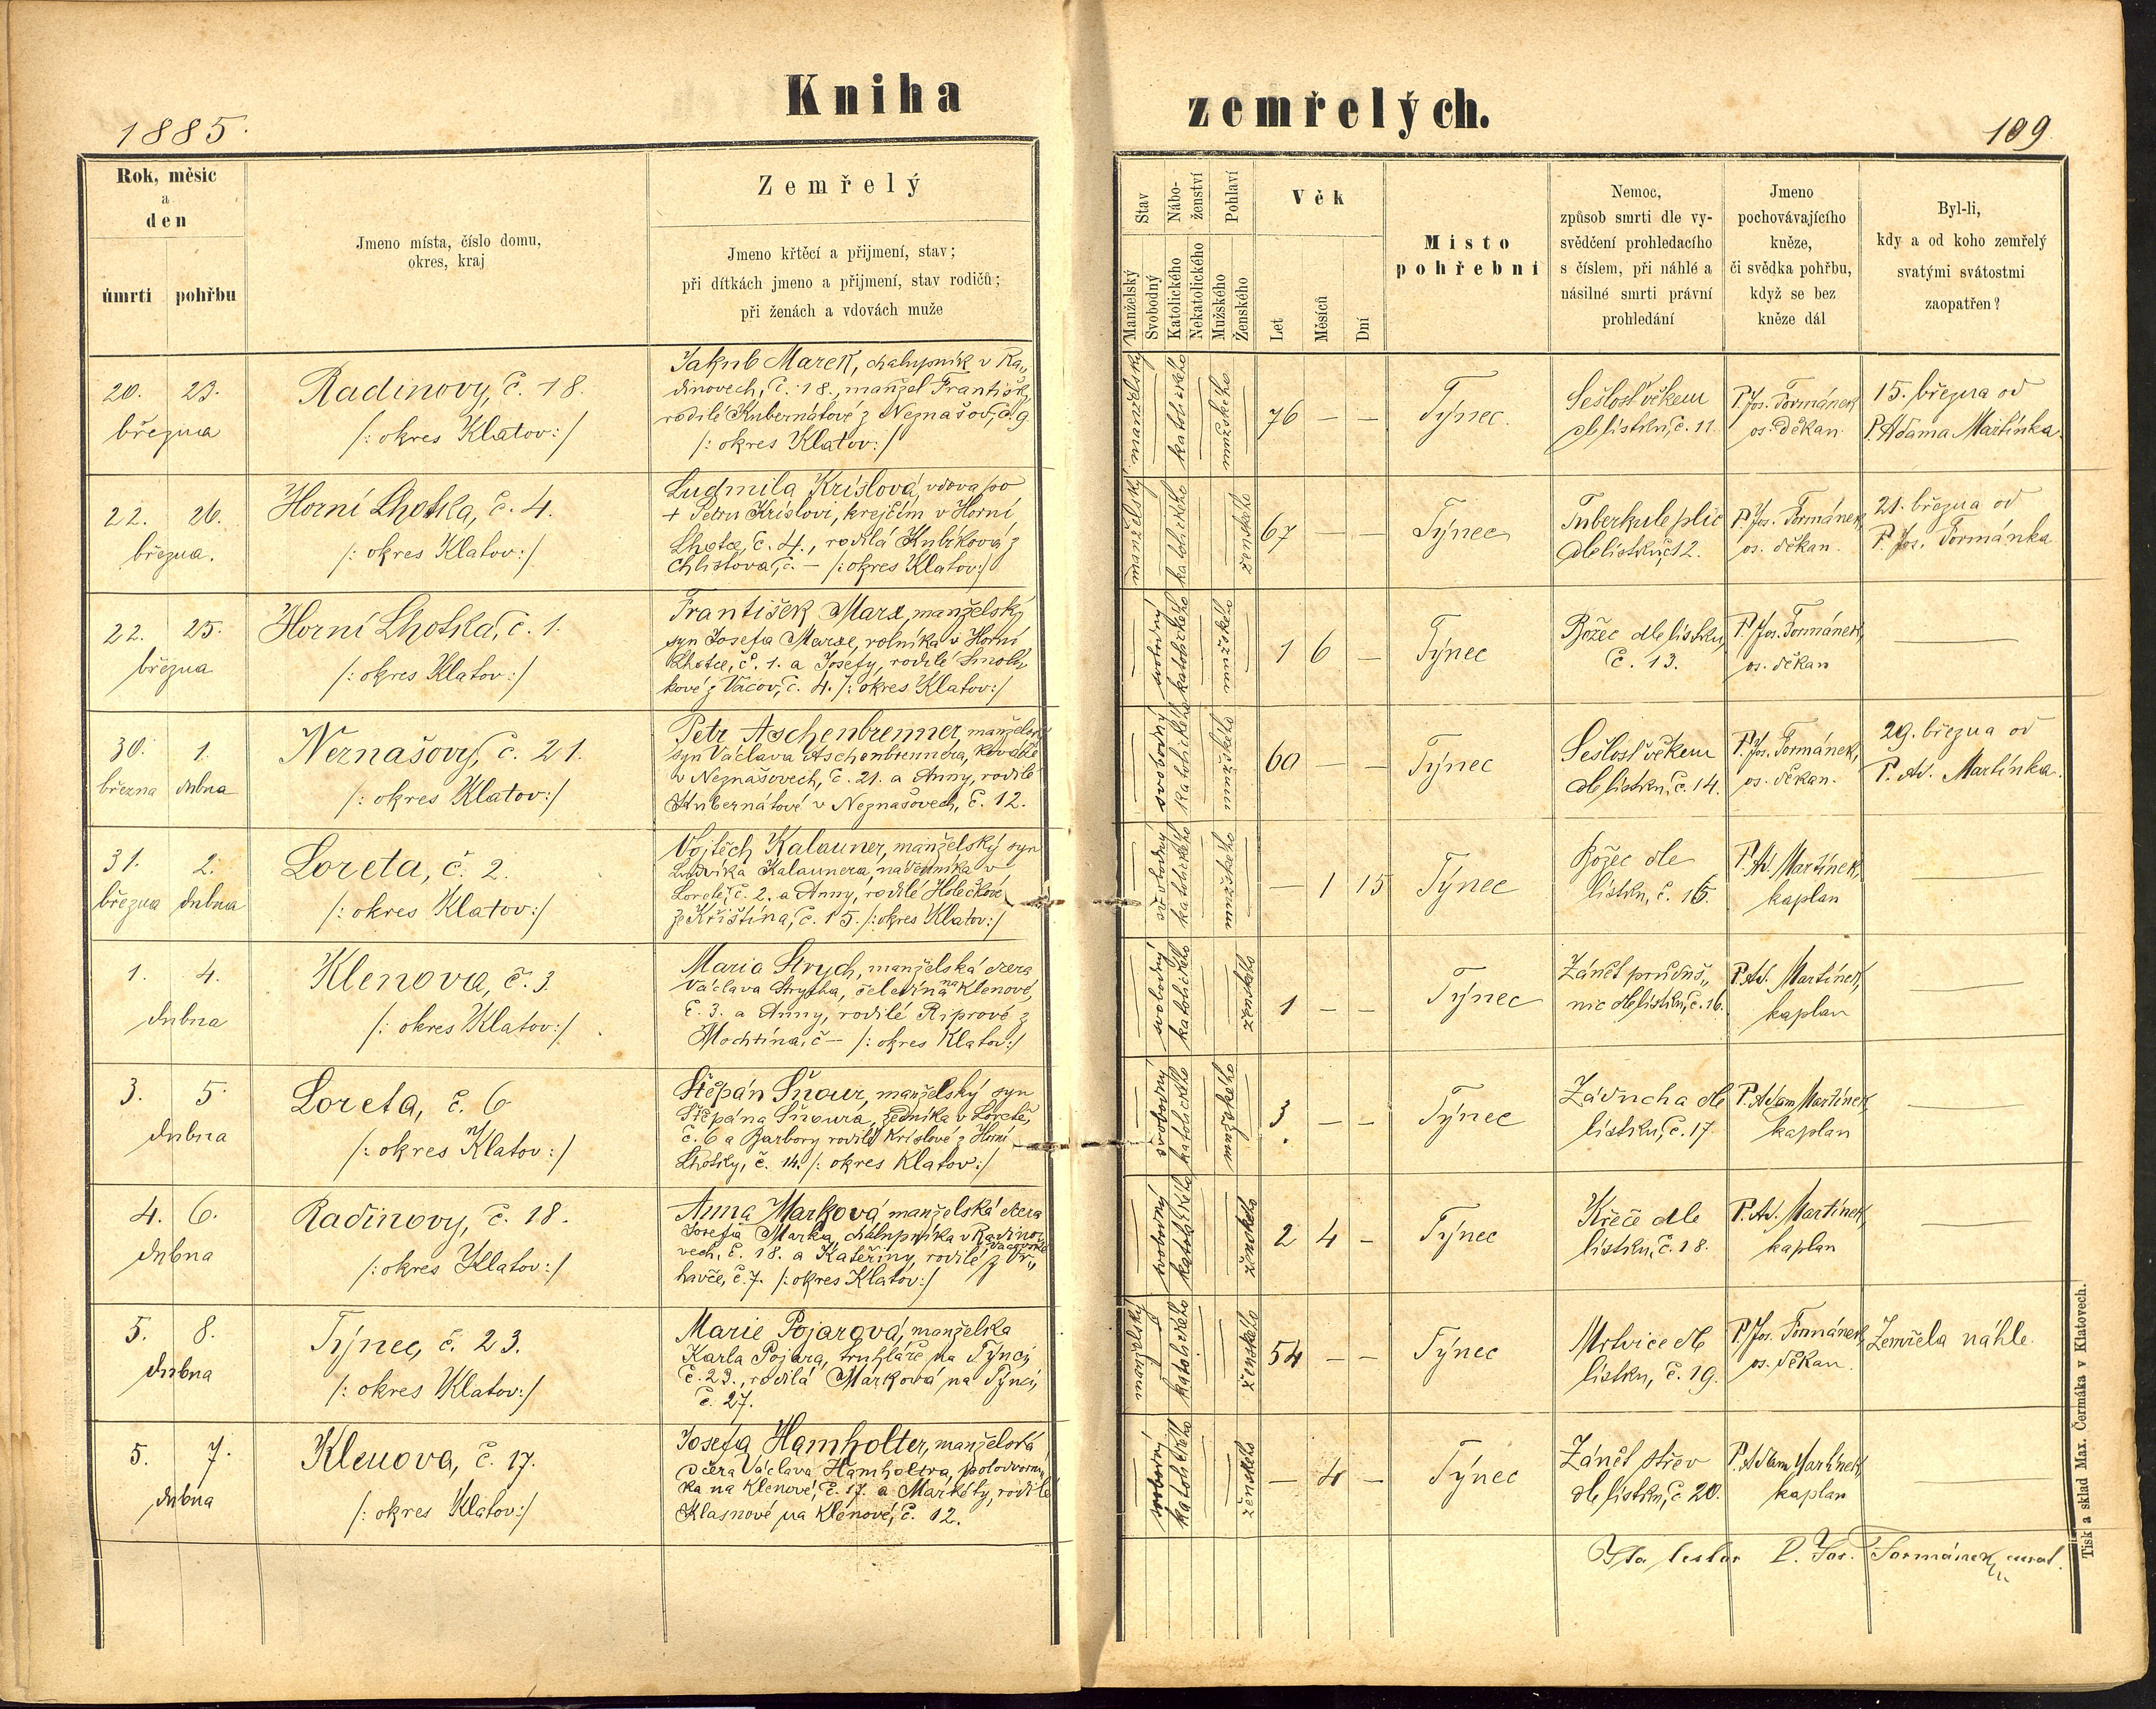 Kniha zemřelých.
1885.
109
Rok, měsíc
a
den
úmrtí pohřbu
Jmeno místa, číslo domu,
okres, kraj
Zemřelý
Jmeno křtěcí a přijmení, stav;
při dítkách jmeno a přijmení, stav rodičů;
při ženách a vdovách muže
Stav
Manželský
Svobodný
Nábo-
ženství
Katolického
Nekatolického
Pohlaví
Mužského
Ženského
Věk
Let
Měsíců
Dní
Místo
pohřební
Nemoc,
způsob smrti dle vy-
svědčení prohledacího
s číslem, při náhlé a
násilné smrti právní
prohledání
Jmeno
pochovávajícího
kněze,
či svědka pohřbu,
když se bez
kněze dál
Byl-li,
kdy a od koho zemřelý
svatými svátostmi
zaopatřen?
20. 23.
března
Radinovy, č. 18.
/: okres Klatov:/
Jakub Marek, chalupník v Ra„
dinovech, č. 18., manžel Františk
rodilé Kubernátové z Neznašov, č. 9
/: okres Klatov:/
manželský
katolického
mužského
76 — —
Týnec.
Sešlost věkem
dle lístku, č. 11.
P. Jos. Formánek
os. děkan.
15. března od
P. Adama Martínka.
22. 26.
března.
Horní Lhotka, č. 4.
/: okres Klatov:/
Ludmila Kríslová, vdova po
+ Petru Kríslovi, krejčím v Horní
Lhotce, č. 4., rodilá Kubíková z
Chlistova, č. — /: okres Klatov:/
manželský
katolického
ženského
67 — —
Týnec
Tuberkule plic
dle lístku, č. 12.
P. Jos. Formánek
os. děkan.
21. března od
P. Jos. Formánka
22. 25.
března
Horní Lhotka, č. 1.
/: okres Klatov:/
František Marx, manželský
syn Josefa Marxe, rolníka v Horní
Lhotce, č. 1. a Josefy, rodilé Smolí„
kové z Vacov, č. 4. /: okres Klatov:/
svobodný
katolického
mužského
1 6 —
Týnec
Božec dle lístku,
č. 13.
P. Jos. Formánek,
os. děkan
30. 1.
března dubna
Nernašovy, č. 21.
/: okres Klatov:/
Petr Aschenbrenner, manželský
syn Václava Aschenbrennera, kováře
v Neznašovech, č. 21. a Anny, rodilé
Kubernátové v Neznašovech, č. 12.
svobodný
katolického
mužského
60 — —
Týnec
Sešlost věkem
dle lístku, č. 14.
P. Jos. Formánek,
os. děkan.
29. března od
P. Ad. Martínka.
31. 2.
března dubna
Loreta, č. 2.
/: okres Klatov:/
Vojtěch Kalauner, manželský syn
Ludvíka Kalaunera, nádeníka v
Loretě, č. 2. a Anny, rodilé Holečkové
z Křištína, č. 15. /: okres Klatov:/
svobodný
katolického
mužského
— 1 15
Týnec
Božec dle
lístku, č. 15.
P. Ad. Martínek,
kaplan
1. 4.
dubna
Klenova, č. 3
/: okres Klatov:/
Maria Strych, manželská dcera
Václava Strycha, čeledína na Klenové,
č. 3. a Anny, rodilé Riprové z
Mochtína, č — /: okres Klatov:/
svobodný
katolického
ženského
1 — —
Týnec
Zánět průduš„
nic dle lístku, č. 16.
P. Ad. Martínek,
kaplan
3. 5.
dubna
Loreta, č. 6
/: okres Klatov:/
Štěpán Šnour, manželský syn
Štěpána Šnoura, zedníka v Loretě,
č. 6 a Barbory rodilé Kríslové z Horní
Lhotky, č. 14. /: okres Klatov:/
svobodný
katolického
mužského
3 — —
Týnec
Záducha dle
lístku, č. 17
P. Adam Martínek,
kaplan
4. 6.
dubna
Radinovy, č. 18.
/: okres Klatov:/
Anna Marková, manželská dcera
Josefa Marka, chalupníka v Radino„
vech, č. 18. a Kateřiny, rodilé
havče, č. 7. /: okres Klatov:/
svobodný
katolického
ženského
2 4 —
Týnec
Křeče dle
lístku, č. 18.
P. Ad. Martínek,
kaplan
5. 8.
dubna
Týnec, č. 23.
/: okres Klatov:/
Marie Pojarová, manželka
Karla Pojara, truhláře na Týnci,
č. 23., rodilá Marková na Týnci,
č. 27.
manželský
katolického
ženského
54 — —
Týnec
Mrtvice dle
lístku, č. 19.
P. Jos. Formánek,
os. děkan.
Zemřela náhle.
5. 7.
dubna
Klenova, č. 17.
/: okres Klatov:/
Josefa Hamholter, manželská
dcera Václava Hamholtra, polodvorní„
ka na Klenové, č. 17. a Markéty, rodilé
Klasnové na Klenové, č. 12.
svobodný
katolického
ženského
— 4 —
Týnec
Zánět střev
dle lístku, č. 20.
P. Adam Martínek,
kaplan
Ita testor P. Jos. Formánek, curat.
Tisk a sklad Max. Čermáka v Klatovech.